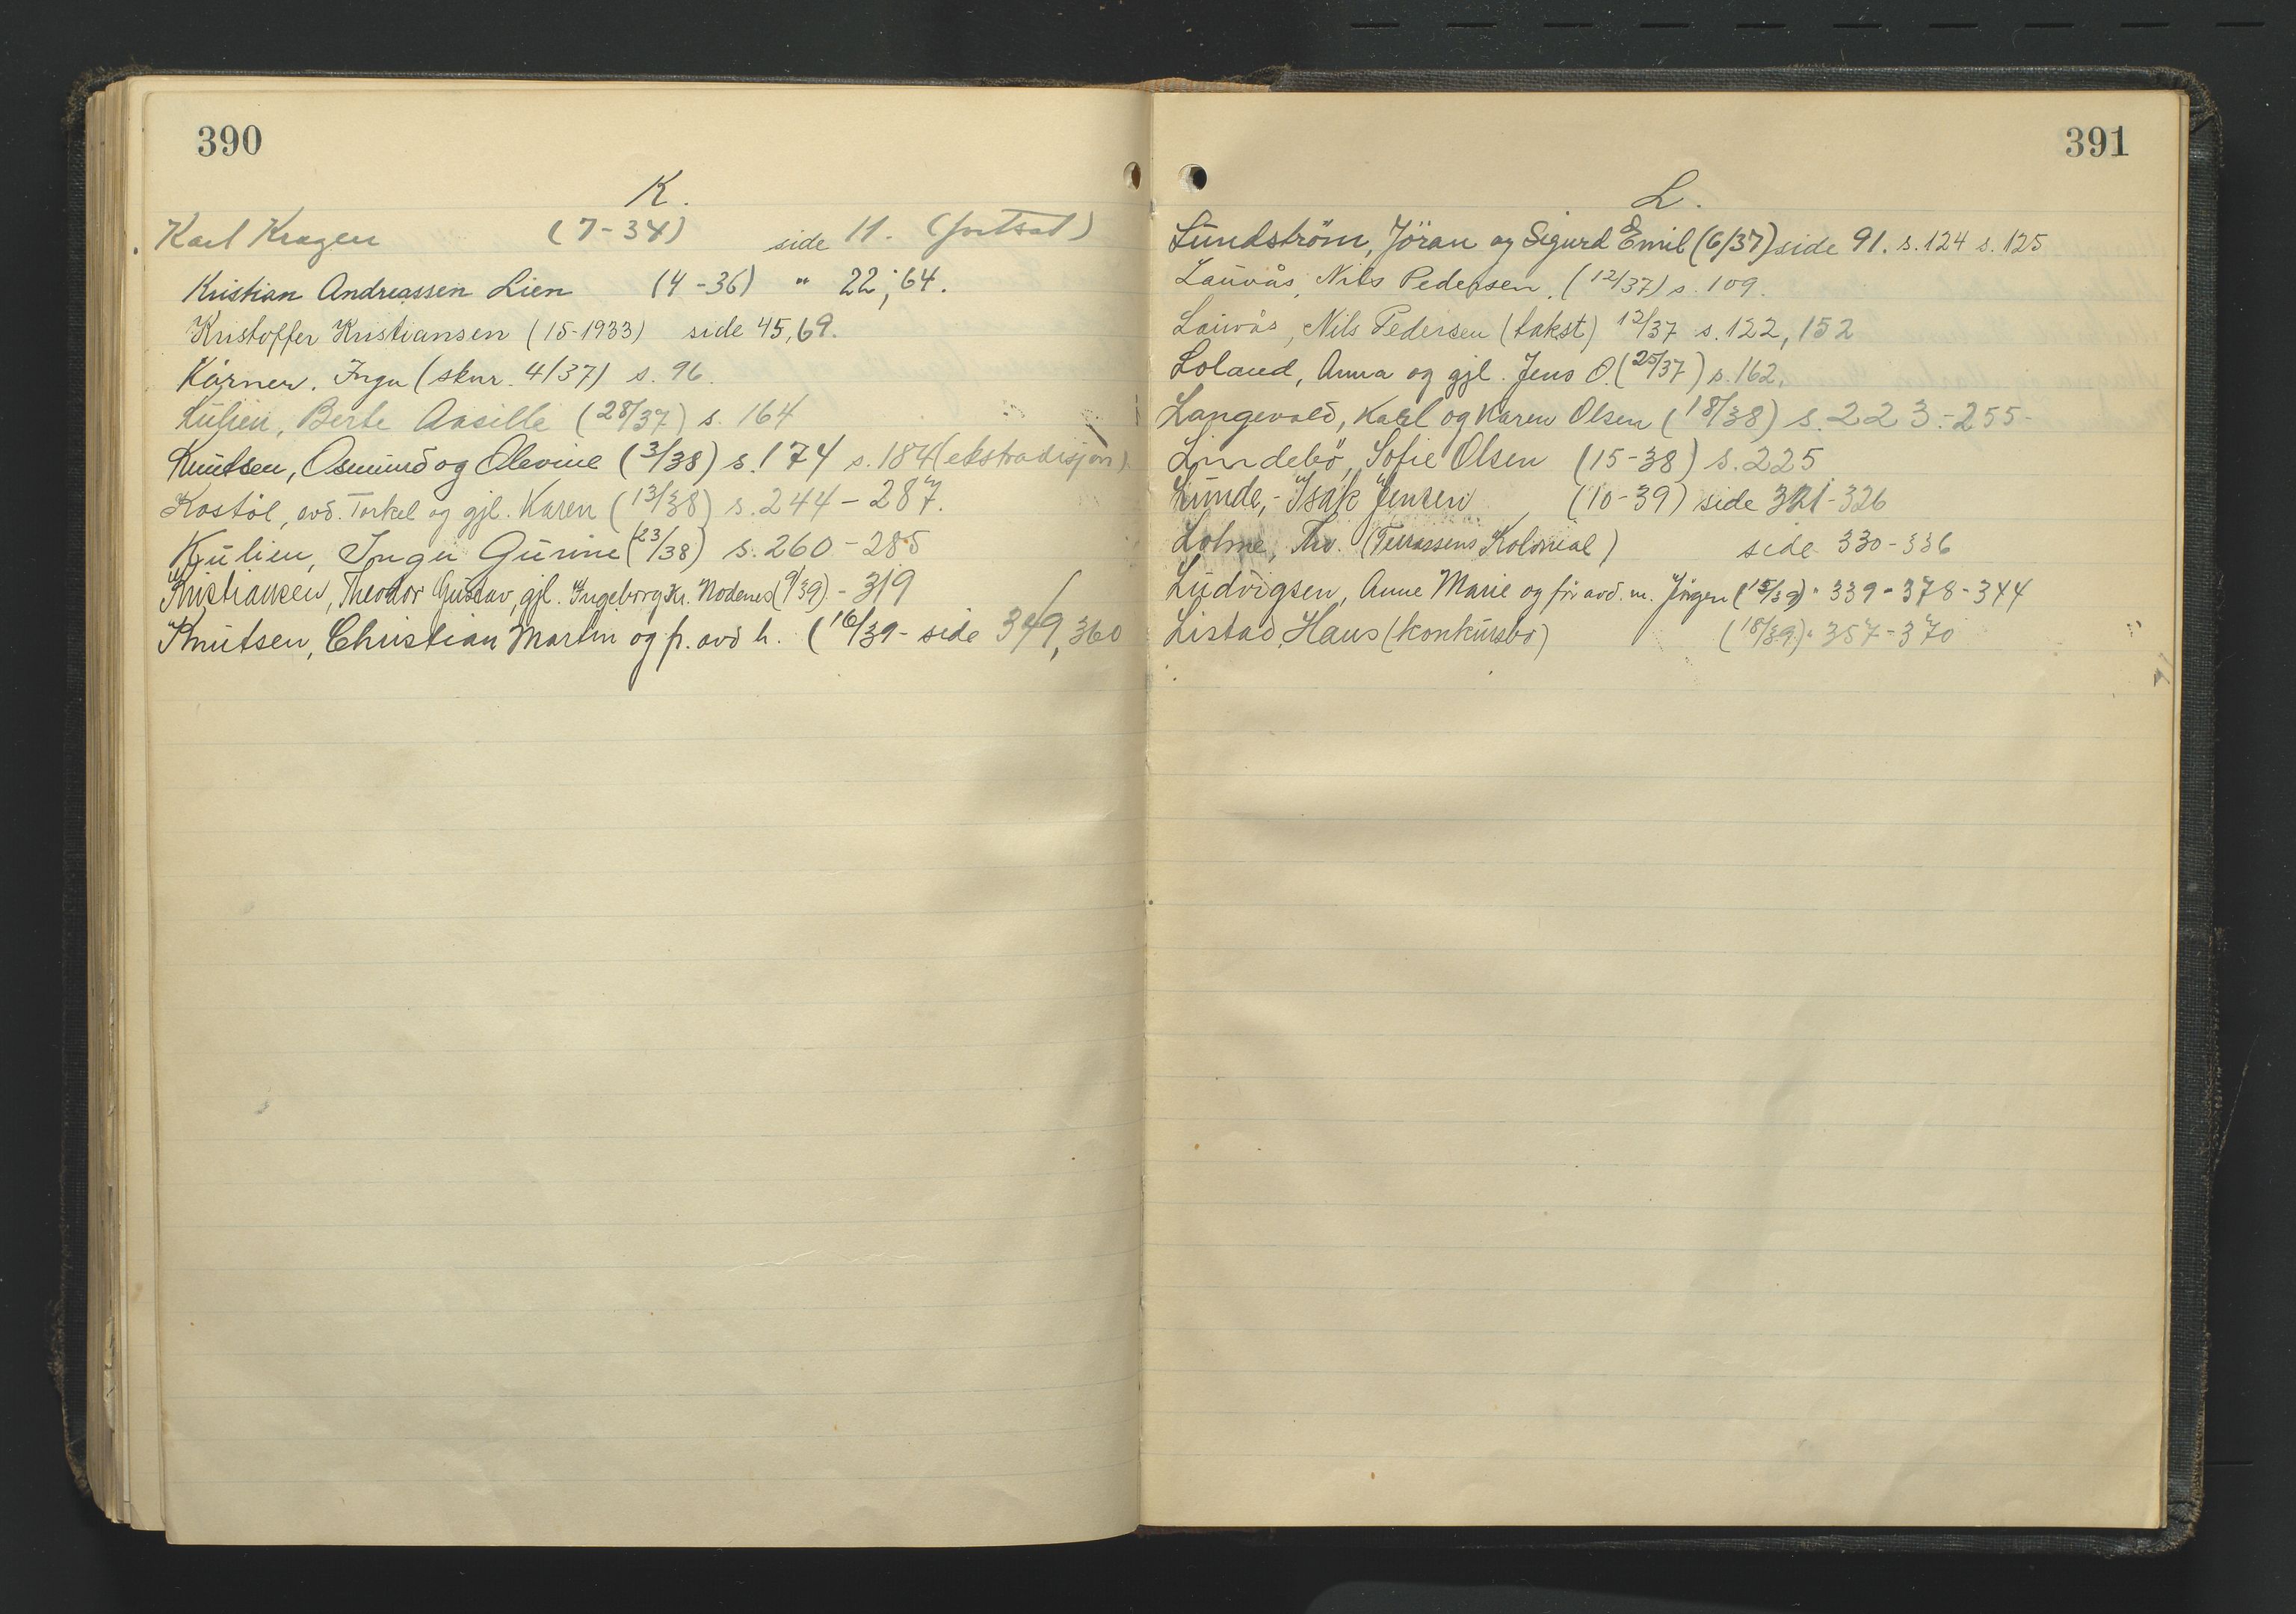 390
K.
Karl Kragen (7-34) side 11. (fortsat)
Kristian Andreassen Lien (4-36) " 22, 64.
Kristoffer Kristiansen (15-1933) side 45, 69.
Kärner, Inga (sknr. 4/37) s. 96.
Kulien, Berte Aasille (28/37) s. 164
Knutsen, Osmund og Olevine (3/38) s. 174 s. 184 (ekstradisjon).
Kostöl, avd. Torkel og gjl. Karen (13/38) s. 244 - 287.
Kulien, Inga Gurine (23/38) s. 260 - 285
Kristiansen, Theodor Gustav, gjl. Ingeborg Kr. Nodenes (9/39) - 319
Knutsen, Christian Martin og f. avd h. (16/39 - side 349, 360
391
L.
Lundström, Jöran og Sigurd Emil (6/37) side 91. s. 124 s. 125
Lauvås, Nils Pedersen. (12/37) s. 109.
Lauvås, Nils Pedersen (takst) 12/37 s. 122, 152
Loland, Anna og gjl. Jens O. (25/37) s. 162.
Langevold, Karl og Karen Olsen (18/38) s. 223 - 255 -
Lindebö, Sofie Olsen (15-38) s. 225
Lunde, - Isak Jensen (10-39) side 321 - 326
Lohne, Thv. (Terrassens Kolonial) side 330 - 336
Ludvigsen, Anne Marie og för avd. m. Jörgen (15/39) " 339 - 378 - 344
Listad, Hans (konkursbo) (18/39) " 357 - 370